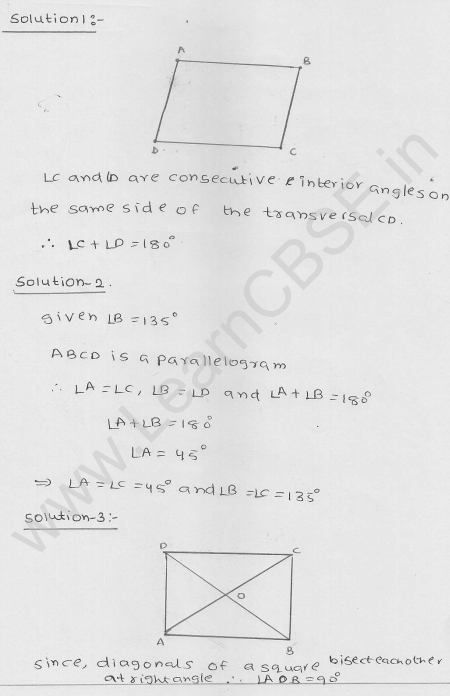 Solution1:-
A
B
D
C
∠C and ∠D are consecutive interior angles on
the same side of the transversal CD.
∴ ∠C + ∠D = 180°
Solution-2.
given ∠B = 135°
ABCD is a parallelogram
∴ ∠A = ∠C, ∠B = ∠D and ∠A + ∠B = 180°
∠A + ∠B = 180°
∠A = 45°
⇒ ∠A = ∠C = 45° and ∠B = ∠C = 135°
Solution-3:-
D
C
O
A
B
since, diagonals of a square bisect each other
at right angle ∴ ∠AOB = 90°
www.LearnCBSE.in